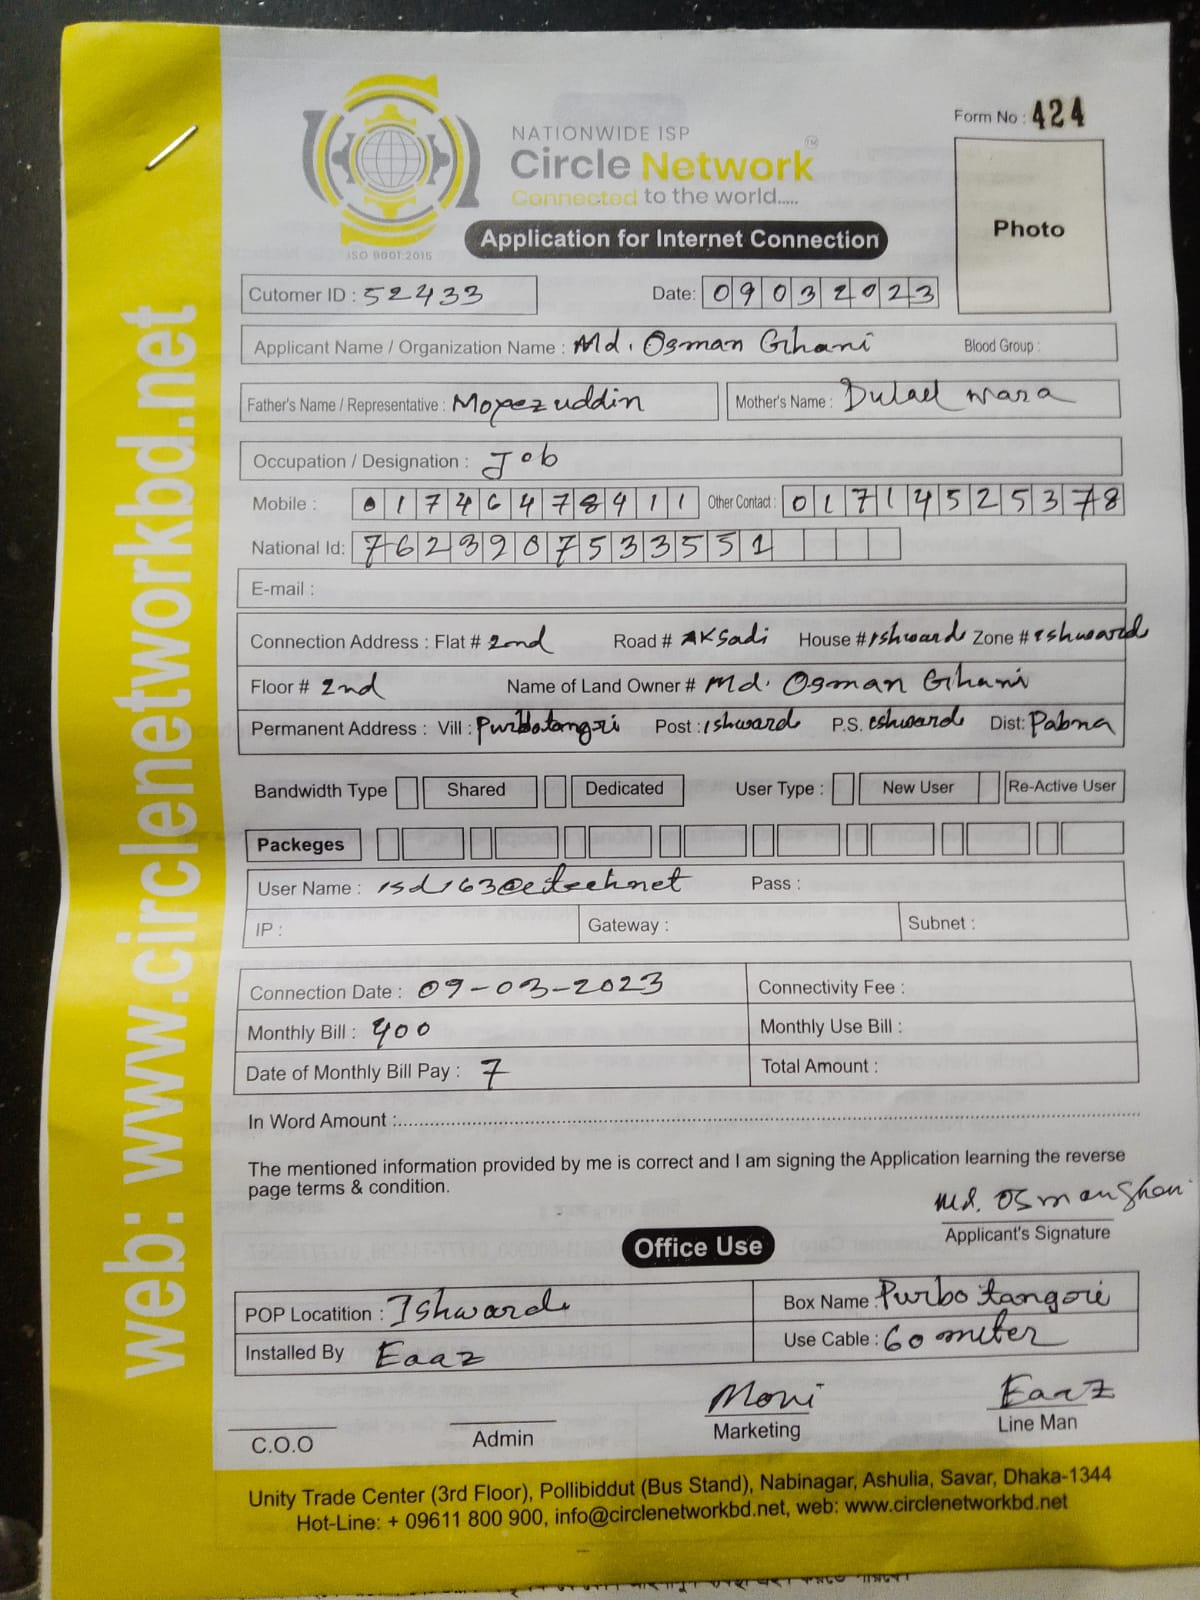 NATIONWIDE ISP
Circle Network TM
Connected to the world.....
ISO 9001:2015
Form No : 424
Photo
Application for Internet Connection
Cutomer ID : 52433 Date: 09032023
Applicant Name / Organization Name : Md. Osman Ghani Blood Group :
Father's Name / Representative : Mopezuddin Mother's Name : Dulael mara
Occupation / Designation : Job
Mobile : 01746478911 Other Contact : 01714525378
National Id: 7623907533551
E-mail :
Connection Address : Flat # 2nd Road # AKSadi House # Ishwardi Zone # eshwardi
Floor # 2nd Name of Land Owner # Md. Osman Ghani
Permanent Address : Vill : Purbotangri Post : Ishwardi P.S. eshwardi Dist: Pabna
Bandwidth Type Shared Dedicated User Type : New User Re-Active User
Packeges
User Name : isd163@etechnet Pass :
IP : Gateway : Subnet :
Connection Date : 09-03-2023 Connectivity Fee :
Monthly Bill : 400 Monthly Use Bill :
Date of Monthly Bill Pay : 7 Total Amount :
In Word Amount :
The mentioned information provided by me is correct and I am signing the Application learning the reverse
page terms & condition.
Md. Osmanghani
Applicant's Signature
Office Use
POP Locatition : Ishwardi Box Name : Purbo tangori
Installed By Eaaz Use Cable : 60 miter
Moni Eaaz
C.O.O Admin Marketing Line Man
Unity Trade Center (3rd Floor), Pollibiddut (Bus Stand), Nabinagar, Ashulia, Savar, Dhaka-1344
Hot-Line: + 09611 800 900, info@circlenetworkbd.net, web: www.circlenetworkbd.net
web: www.circlenetworkbd.net